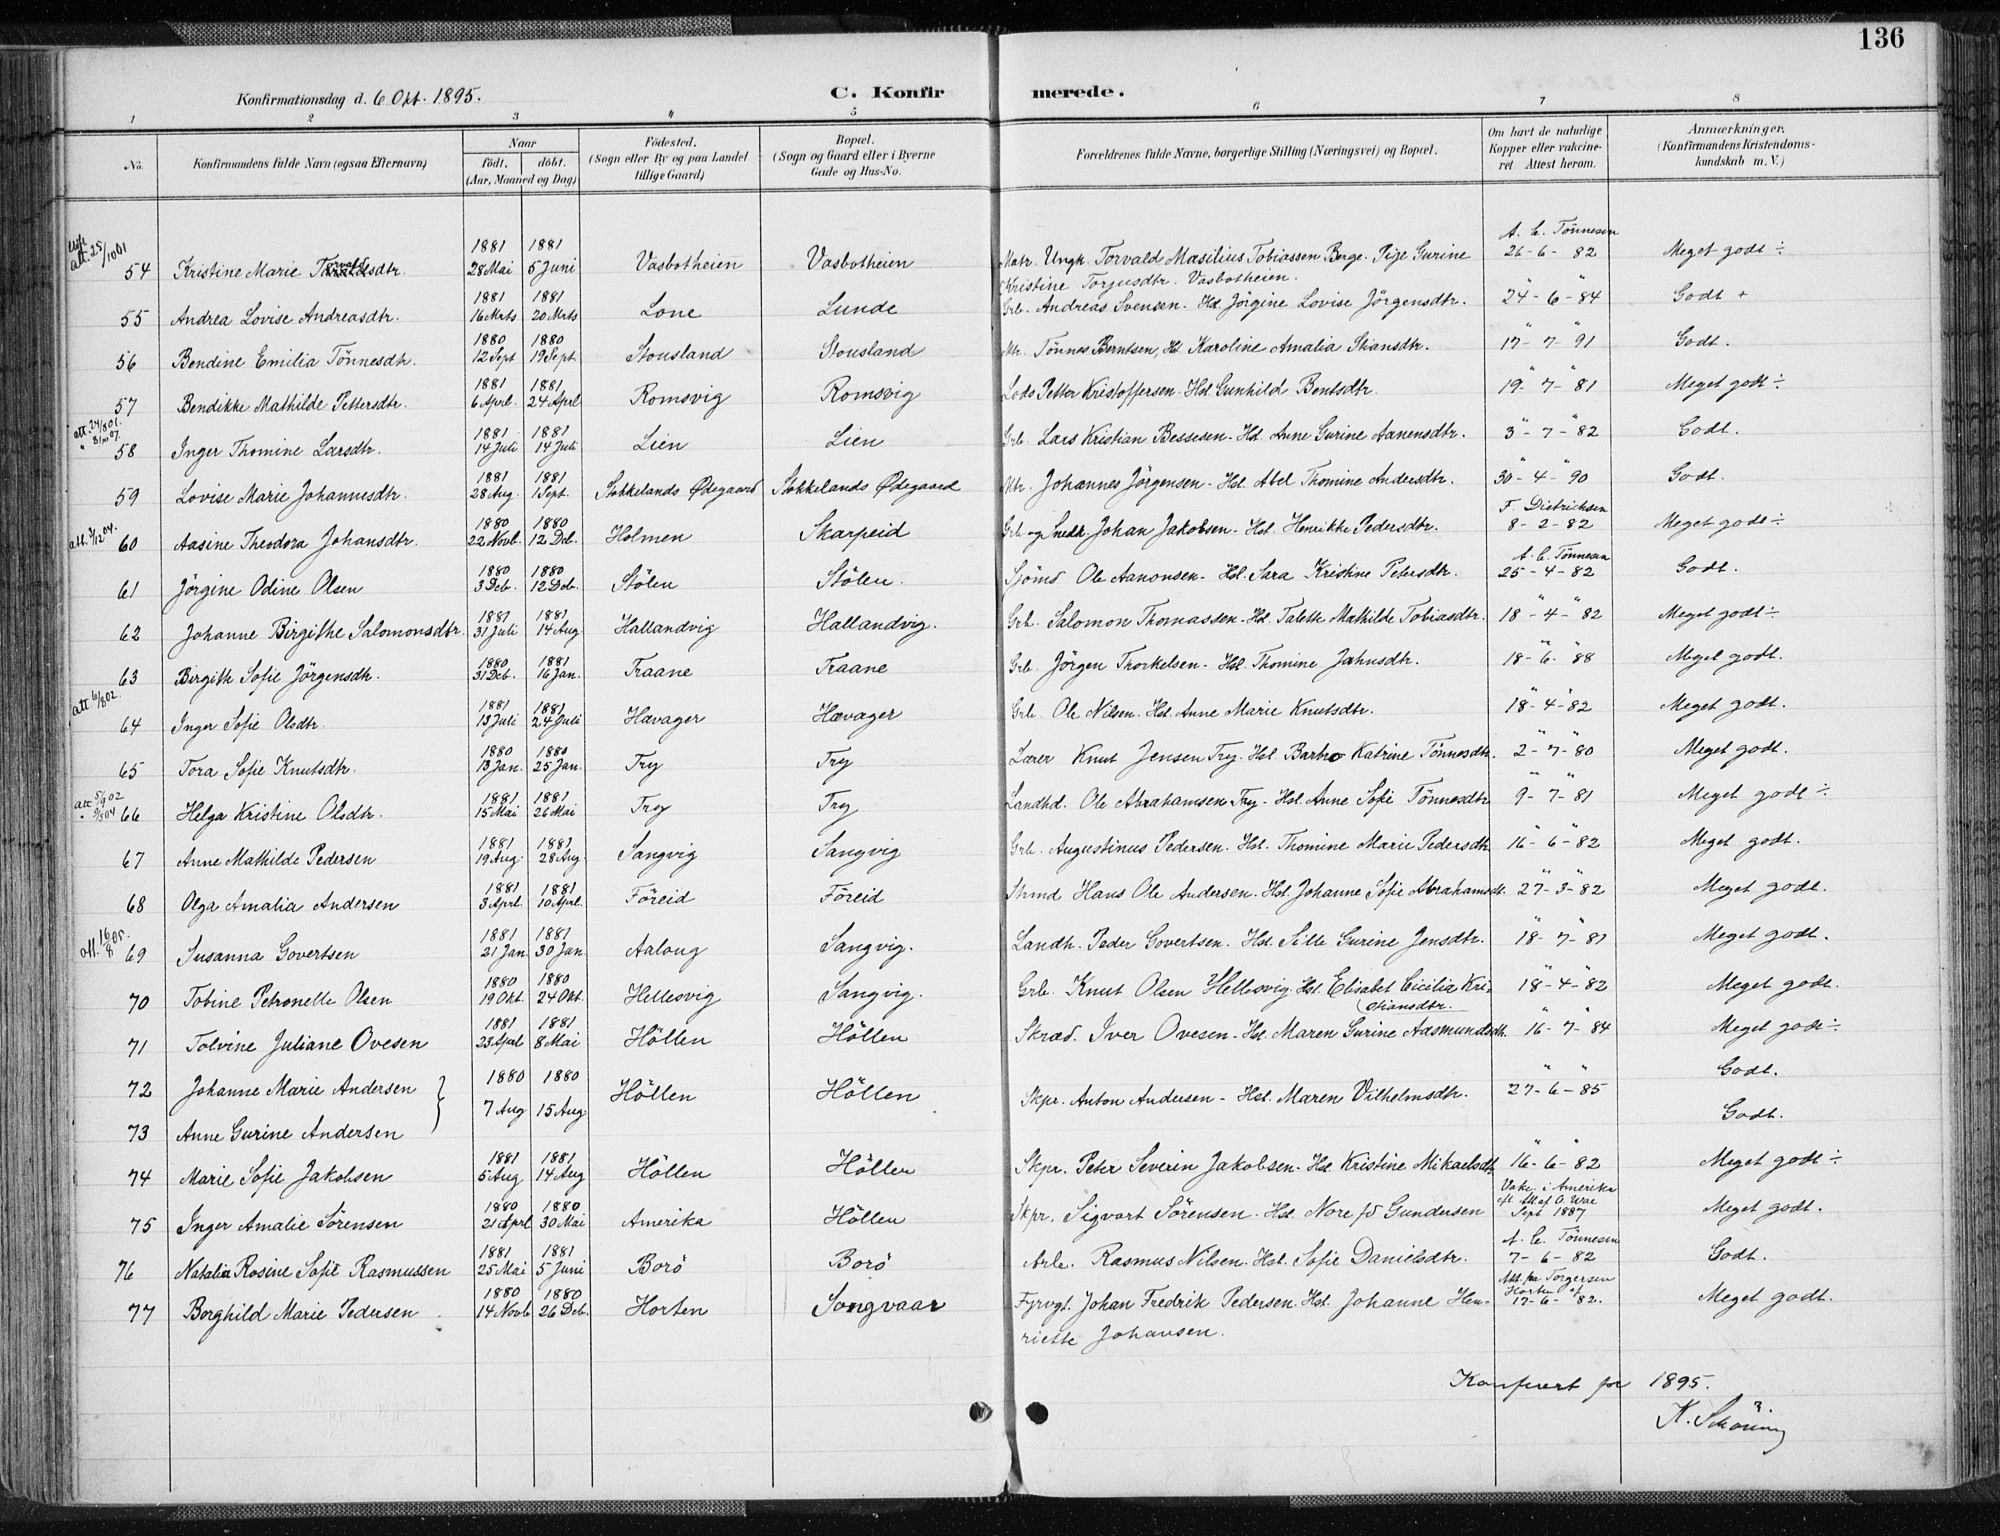 136
Konfirmationsdag d. 6 Okt. 1895.
C. Konfirmerede.
1 2 3 4 5 6 7 8
No.
Konfirmandens fulde Navn (ogsaa Efternavn)
Naar
født. døbt.
(Aar, Maaned og Dag)
Fødested.
(Sogn eller By og paa Landet
tillige Gaard)
Bopæl.
(Sogn og Gaard eller i Byerne
Gade og Hus-No.
Forældrenes fulde Navne, borgerlige Stilling (Næringsvei) og Bopæl.
Om havt de naturlige
Kopper eller vakcine-
ret. Attest herom.
Anmærkninger.
(Konfirmandens Kristendoms-
kundskab m. V.)
att. 25/10 01 54 Kristine Marie Torvaldsdtr. 1881 28 Mai 1881 5 Juni Vasbotheien Vasbotheien Matr. Ungk. Torvald Masilius Tobiassen Berge. Pige Gurine A. C. Tönnesen 26-6-82 Meget godt ÷
Kristine Torjusdtr. Vasbotheien.
55 Andrea Lovise Andreasdtr. 1881 16 Mrts 1881 20 Mrts Lone Lunde Grb. Andreas Svensen. Hst. Jörgine Lovise Jörgensdtr. 24"-6-"84 Godt +
56 Bendine Emilia Tönnesdtr. 1880 12 Sept 1880 19 Sept. Stousland Stousland Mtr. Tönnes Berntsen, Hst. Karoline Amalia Stiansdtr. 17"-7-"91 Godt.
57 Bendikke Mathilde Pettersdtr. 1881 6 Aprl. 1881 24 Aprl Romsvig Romsvig Lods Petter Kristoffersen. Hst. Gunhild Bentsdtr. 19"-7-"81 Meget godt ÷
att. 24/8 06. 58 Inger Thomine Larsdtr. 1881 14 Juli 1881 14 Juli Lien Lien Grb. Lars Kristian Bessesen - Hst. Anne Gurine Aanensdtr. 3"-7-"82 Godt.
59 Lovise Marie Johannesdtr. 1881 28 Aug. 1881 1 Sept. Stokkelands Ødegaard Stokkelands Ødegaard Mtr. Johannes Jörgensen - Hst. Abel Thomine Andersdtr. 30"-4-"90 Godt.
60 Aasine Theodora Johansdtr. 1880 22 Novb. 1880 12 Deb. Holmen Skarpeid Grb og Snedk. Johan Jakobsen - Hst. Henrikke Pedersdtr. F. Dietrichsen 8-2-82 Meget godt ÷
61 Jörgine Odine Olsen 1880 3 Deb. 1880 12 Deb. Stölen Stölen. Sjömd Ole Aanonsen - Hst. Sara Kristine Petersdtr. A. C. Tönnesen 25-4-82 Godt.
62 Johanne Birgithe Salomonsdtr. 1881 31 Juli 1881 14 Aug Hallandvig Hallandvig. Grb. Salomon Thomassen - Hst. Talette Mathilde Tobiasdtr. 18"-4-"82 Meget godt ÷
63 Birgith Sofie Jörgensdtr. 1880 31 Deb. 1881 16 Jan. Traane Traane Grb. Jörgen Thorkelsen - Hst. Thomine Jahnsdtr. 18-"6-"88 Meget godt.
att. 6/8 02. 64 Inger Sofie Olsdtr. 1881 13 Juli 1881 24 Juli Hævager Hævager Grb. Ole Nilsen. Hst. Anne Marie Knutsdtr. 18"-4-"82 Meget godt.
65 Tora Sofie Knutsdtr. 1880 13 Jan. 1880 25 Jan. Try Try Lærer Knut Jensen Try. Hst Barbro Katrine Tönnesdtr. 2"-7-"80 Meget godt.
att 5/9 02 66 Helga Kristine Olsdtr. 1881 15 Mai 1881 26 Mai Try Try Landhd. Ole Abrahamsen Try - Hst. Anne Sofie Tönnesdtr 9"-7-"81 Meget godt ÷
67 Anne Mathilde Pedersen 1881 19 Aug. 1881 28 Aug. Sangvig Sangvig Grb. Augustinus Pedersen. Hst. Thomine Marie Pedersdtr 16"-6-"82 Meget godt.
68 Olga Amalia Andersen 1881 3 Aprl. 1881 10 Aprl. Föreid Föreid Strmd Hans Ole Andersen. Hst Johanne Sofie Abrahamsdt. 27"-3-"82 Meget godt.
att. 16/8 05. 69 Susanna Govertsen 1881 21 Jan. 1881 30 Jan. Aaloug Sangvig. Landh. Peder Govertsen. Hst. Sille Gurine Jensdtr. 18"-7-"81 Meget godt.
70 Tobine Petronelle Olsen 1880 19 Okt. 1880 24 Okt. Hellesvig Sangvig. Grb. Knut Olsen Hellesvig. Hst. Elisabet Cicilia Kri- 18"-4-"82 Meget godt.
stiansdtr.
71 Tolvine Juliane Ovesen 1881 23 Aprl 1881 8 Mai Höllen Höllen Skræd. Iver Ovesen - Hst. Maren Gurine Aasmundsdtr. 16"-7-"84 Meget godt ÷
72 Johanne Marie Andersen 1880 7 Aug 1880 15 Aug Höllen Höllen Skpr. Anton Andersen - Hst. Maren Vilhelmsdtr. 27"-6-"85 Godt.
73 Anne Gurine Andersen Godt.
74 Marie Sofie Jakobsen 1881 5 Aug 1881 14 Aug Höllen Höllen Skpr. Peter Severin Jakobsen - Hst Kristine Mikaelsdtr 16"-6-"82 Meget godt ÷
75 Inger Amalie Sörensen 1880 21 Aprl 1880 30 Mai Amerika Höllen Skpr. Sigvart Sörensen - Hst. Nore fd Gundersen Vakc. i Amerika Sept 1887 Meget godt.
76 Natalia Rosine Sofie Rasmussen 1881 25 Mai 1881 5 Juni Borö Borö Arb. Rasmus Nilsen. Hst. Sofie Danielsdtr. A. C. Tönnesen 7-6-82 Godt.
77 Borghild Marie Pedersen 1880 14 Novb. 1880 26 Deb. Horten Songvaar Fyrvgt. Johan Fredrik Pedersen. Hst. Johanne Hen- Att. fra Torgersen Horten af 17-6-82. Meget godt.
riette Johansen.
Konferert for 1895.
K. Schöning